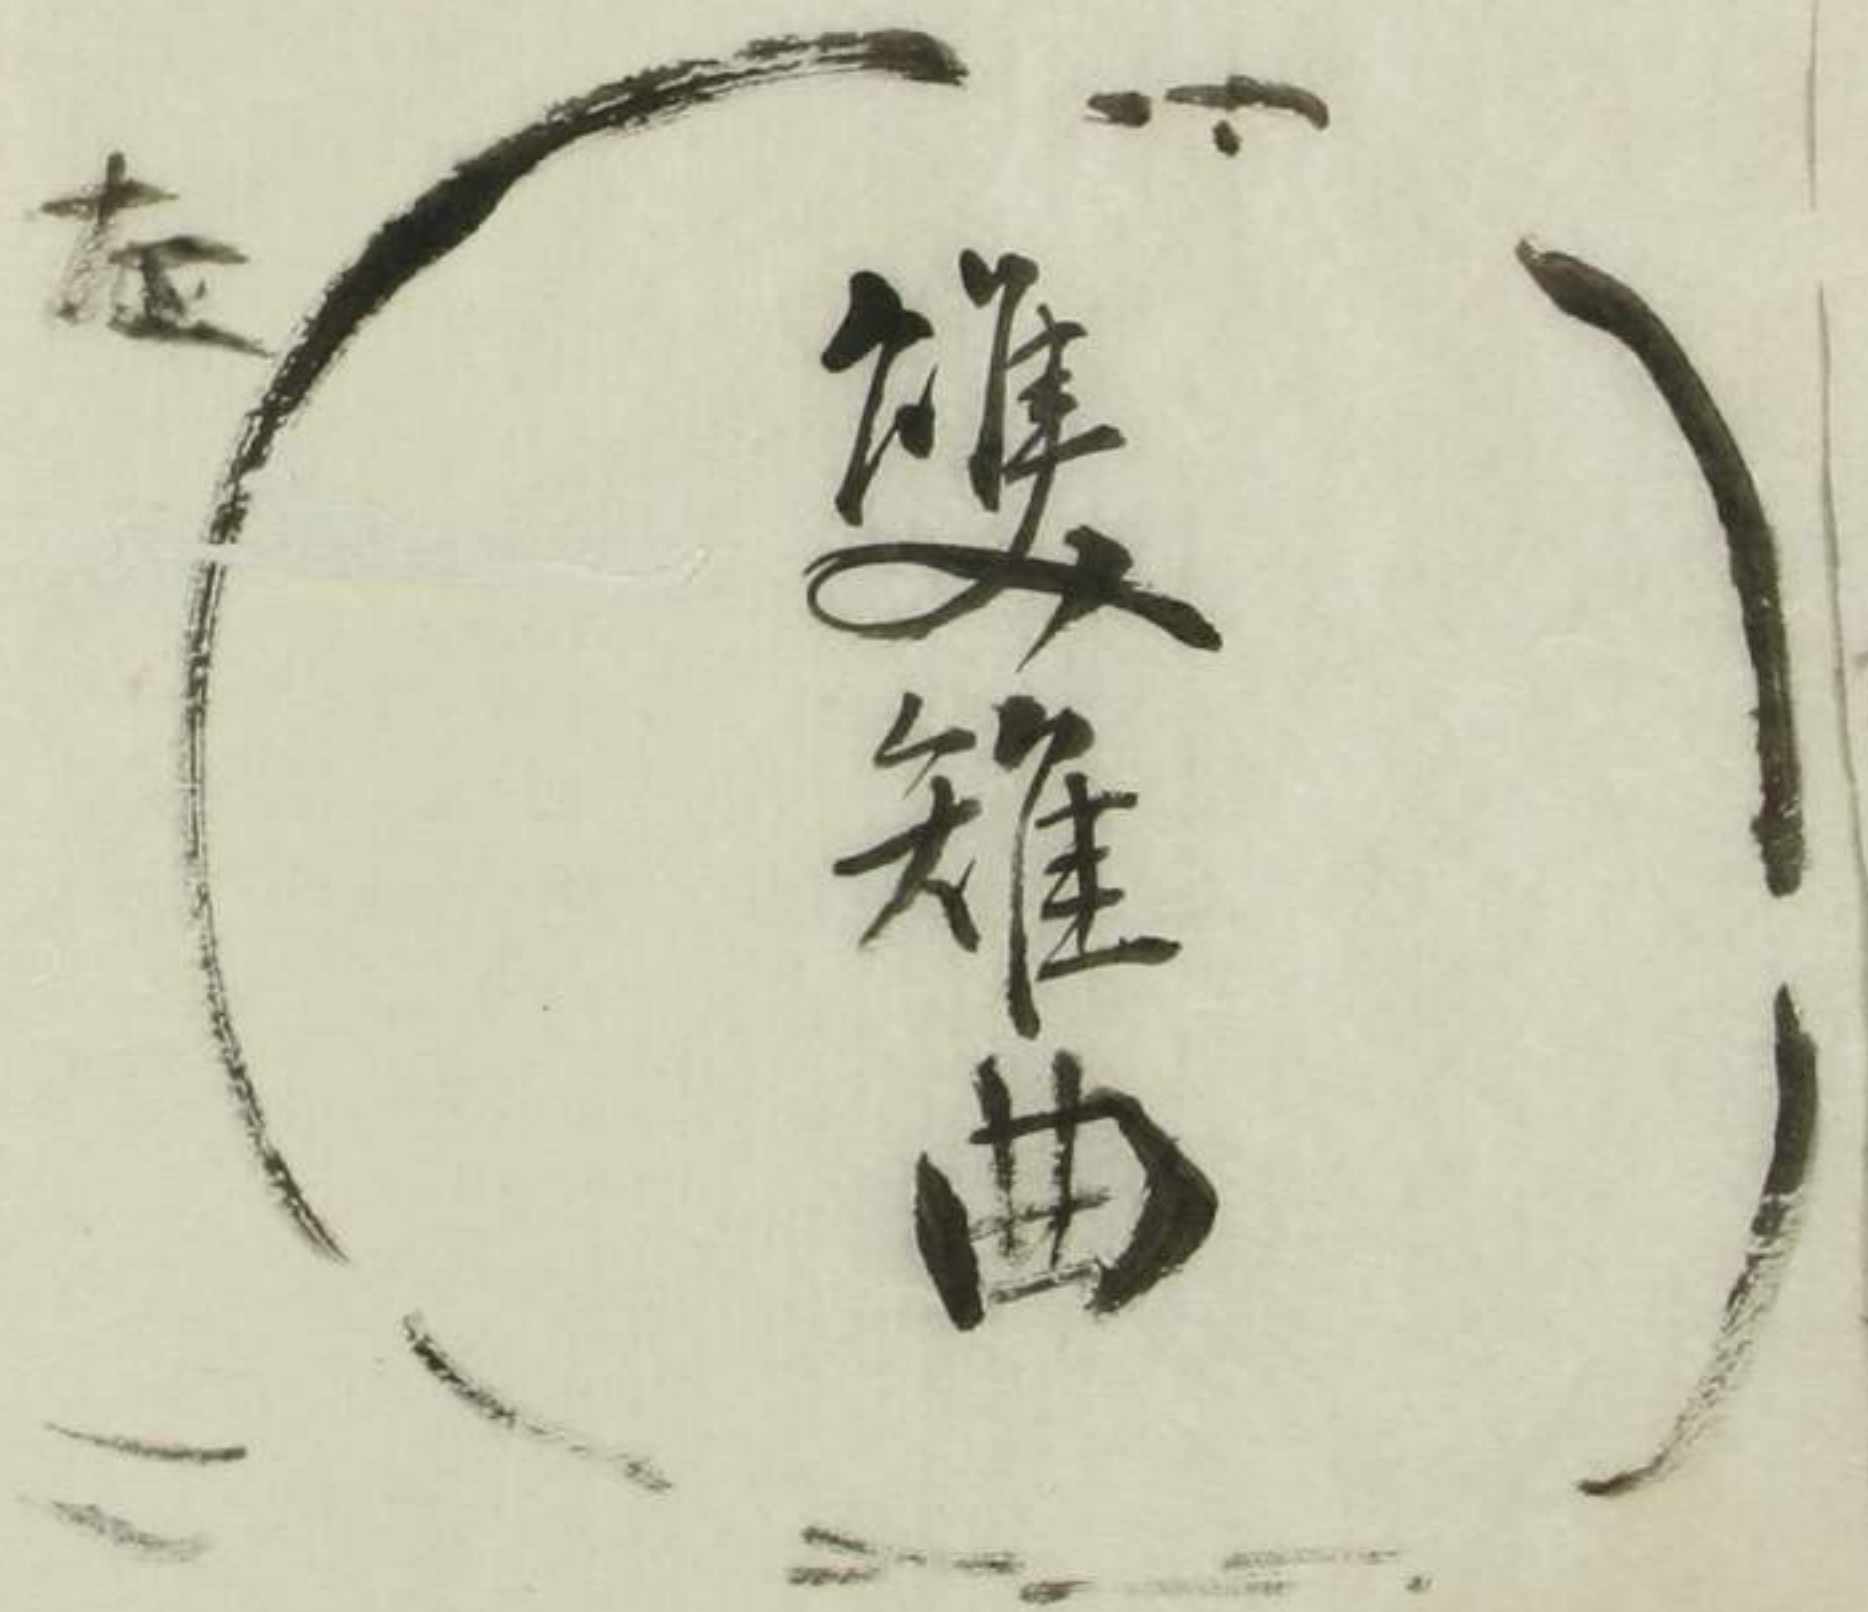 雙雉曲
左